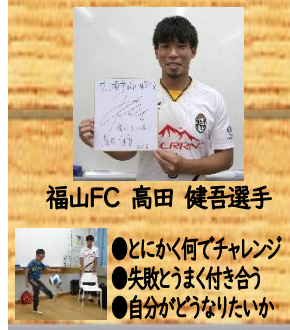 福山FC 高田 健吾選手
●とにかく何でチャレンジ
●失敗とうまく付き合う
●自分がどうなりたいか